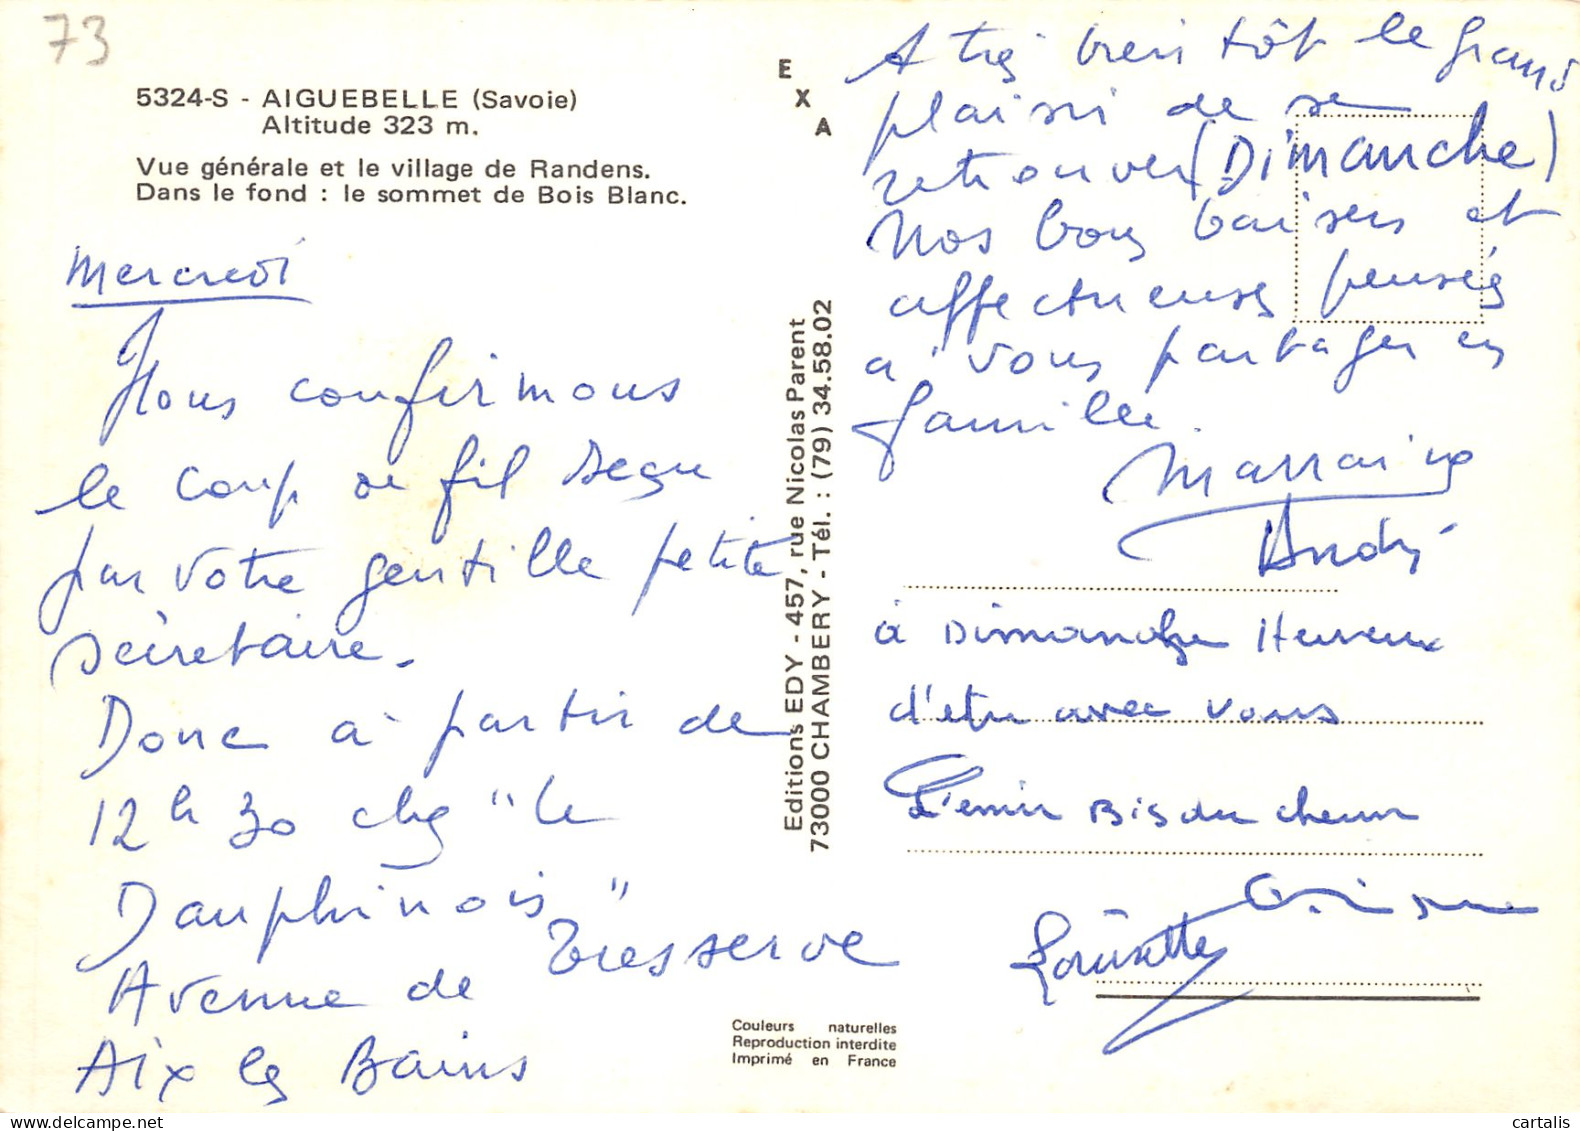 73
5324-S - AIGUEBELLE (Savoie)
Altitude 323 m.
Vue générale et le village de Randens.
Dans le fond : le sommet de Bois Blanc.
Mercredi
Nous confirmons
le coup de fil reçu
par votre gentille petite
sécretaire.
Donc à partir de
12h30 chez "le
Dauphinois"
Avenue de Tresserve
Aix les Bains
E
X
A
Editions EDY - 457, rue Nicolas Parent
73000 CHAMBERY - Tél. : (79) 34.58.02
A très bientôt le grand
plaisir de se
retrouver (Dimanche)
Nos bons baisers et
affectueuses pensées
à vous partager en
famille.
Marraine
André
à Dimanche Heureux
d'etre avec vous
Bis du
Louisette
Couleurs naturelles
Reproduction interdite
Imprimé en France
cartalis